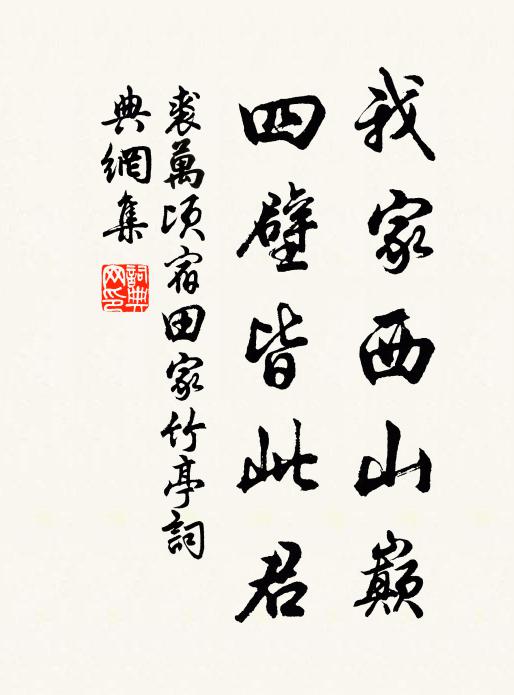 我家西山巔
四壁皆此君
裘萬頃宿田家竹亭詞
典網集
詞典网印